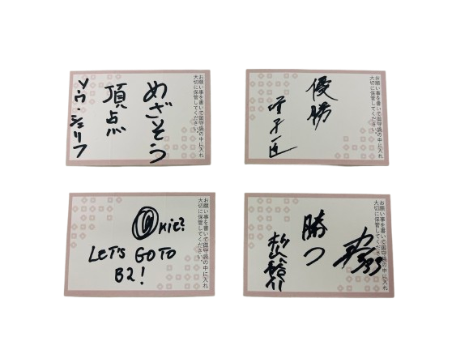 お願い事を書いて御守袋の中に入れ
大切に保管してください。
めざそう
頂点
ソウ・シェリフ
お願い事を書いて御守袋の中に入れ
大切に保管してください。
優勝
お願い事を書いて御守袋の中に入れ
大切に保管してください。
LET'S GO TO
B2!
お願い事を書いて御守袋の中に入れ
大切に保管してください。
勝つ